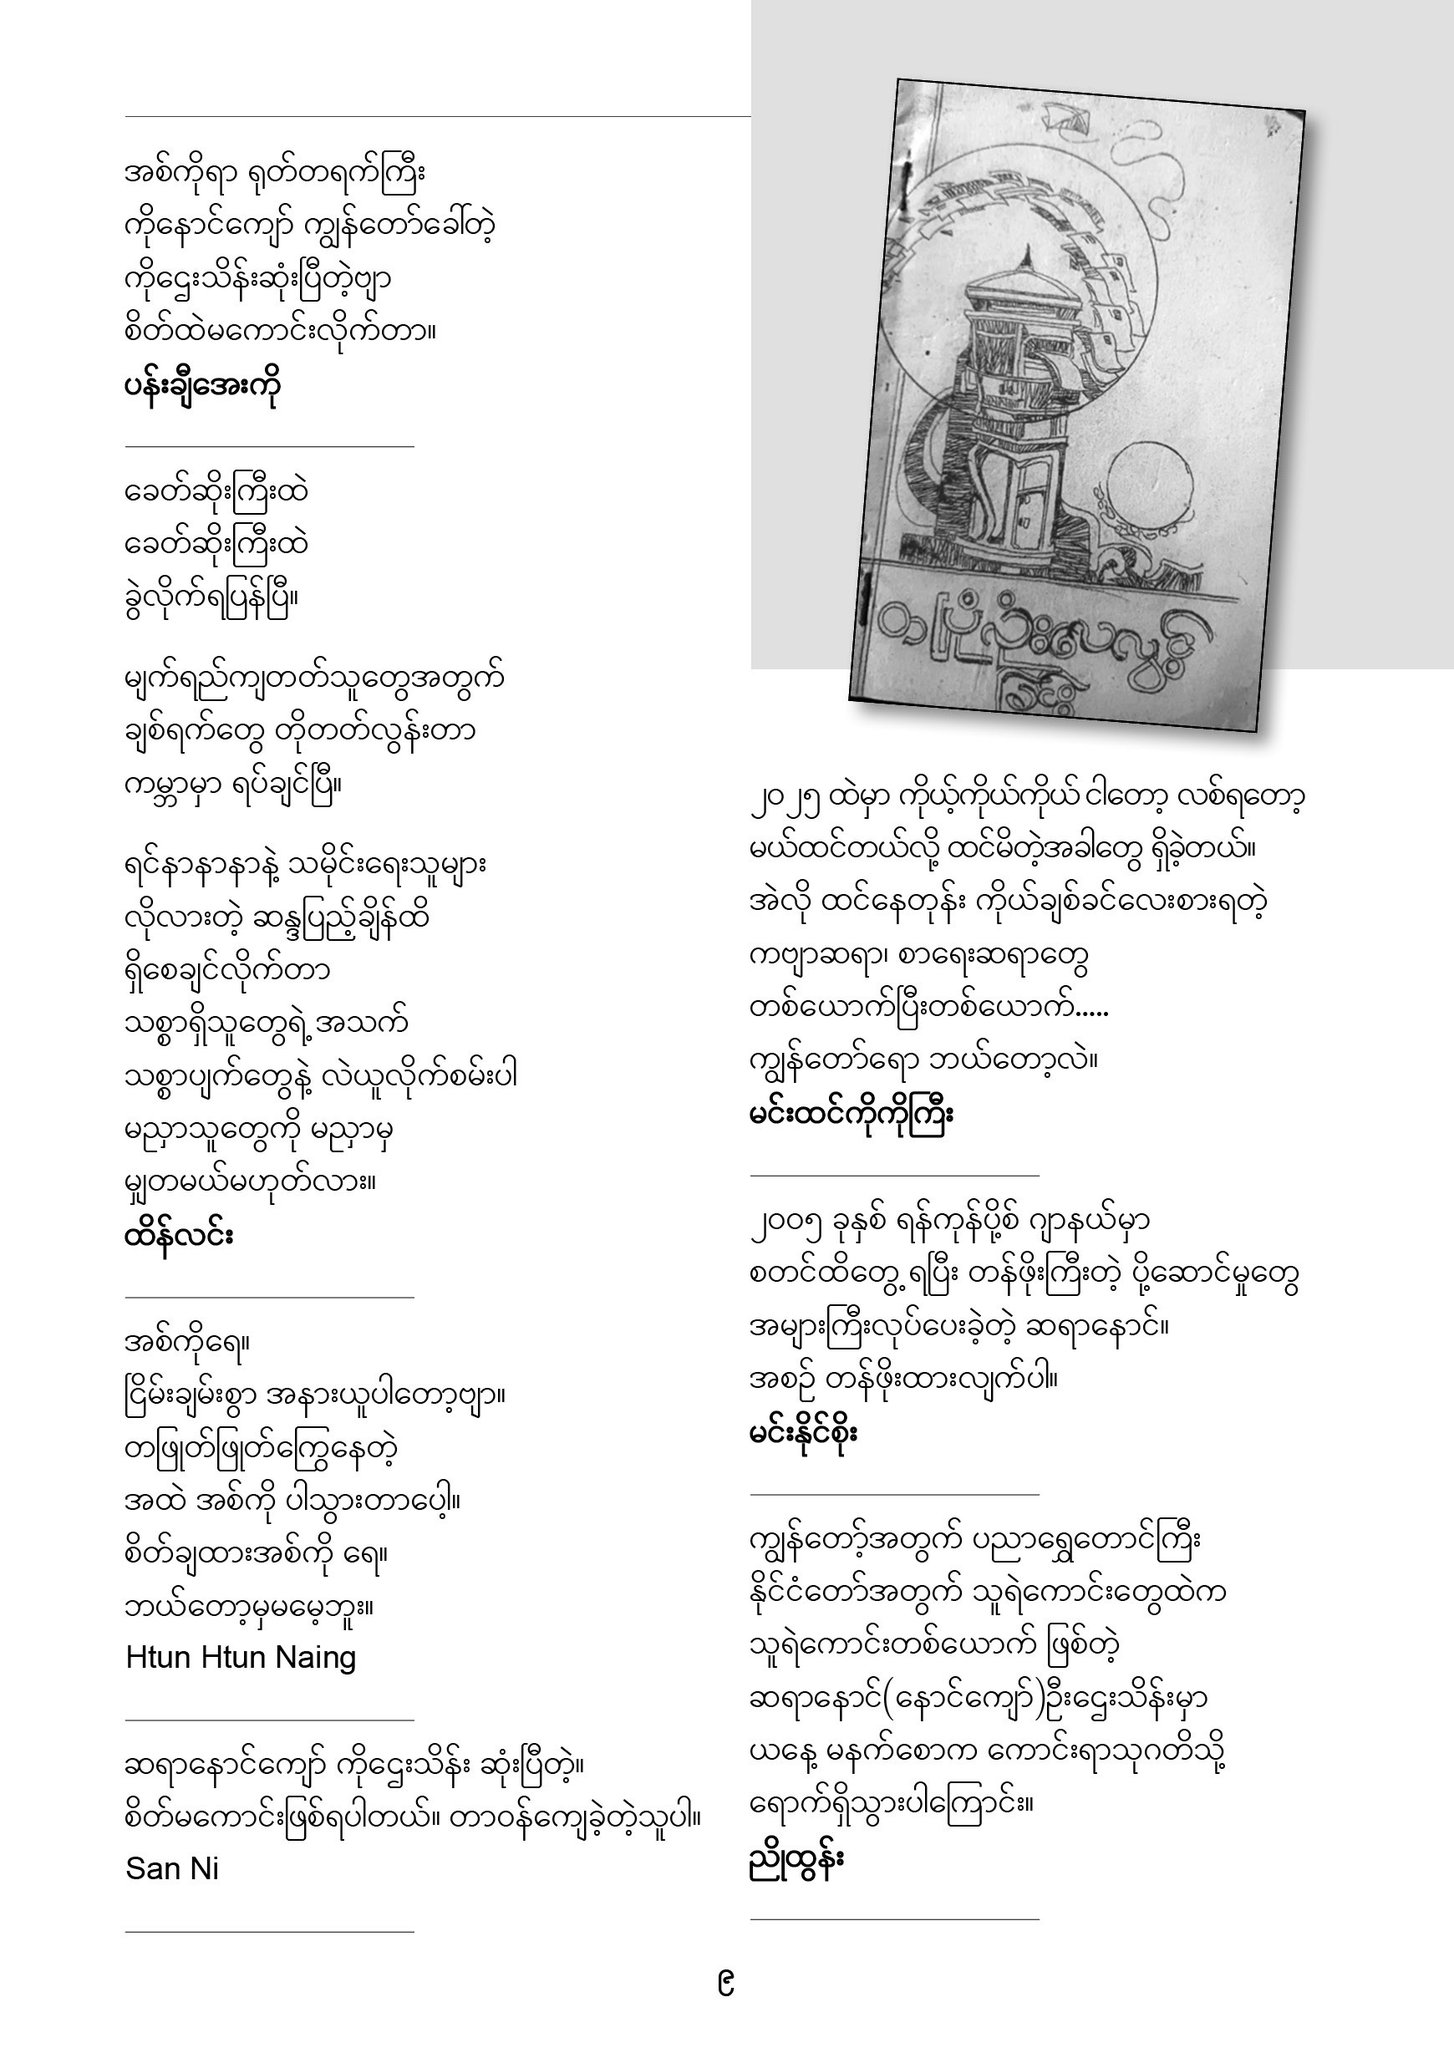 အစ်ကိုရာ ရုတ်တရက်ကြီး
ကိုနောင်ကျော် ကျွန်တော်ခေါ်တဲ့
ကိုဌေးသိန်းဆုံးပြီတဲ့ဗျာ
စိတ်ထဲမကောင်းလိုက်တာ။
ပန်းချီအေးကို
ခေတ်ဆိုးကြီးထဲ
ခေတ်ဆိုးကြီးထဲ
ခွဲလိုက်ရပြန်ပြီ။
မျက်ရည်ကျတတ်သူတွေအတွက်
ချစ်ရက်တွေ တိုတတ်လွန်းတာ
ကမ္ဘာမှာ ရပ်ချင်ပြီ။
ရင်နာနာနာနဲ့ သမိုင်းရေးသူများ
လိုလားတဲ့ ဆန္ဒပြည့်ချိန်ထိ
ရှိစေချင်လိုက်တာ
သစ္စာရှိသူတွေရဲ့ အသက်
သစ္စာပျက်တွေနဲ့ လဲယူလိုက်စမ်းပါ
မညှာသူတွေကို မညှာမှ
မျှတမယ်မဟုတ်လား။
ထိန်လင်း
အစ်ကိုရေ။
ငြိမ်းချမ်းစွာ အနားယူပါတော့ဗျာ။
တဖြုတ်ဖြုတ်ကြွေနေတဲ့
အထဲ အစ်ကို ပါသွားတာပေါ့။
စိတ်ချထားအစ်ကို ရေ။
ဘယ်တော့မှမမေ့ဘူး။
Htun Htun Naing
ဆရာနောင်ကျော် ကိုဌေးသိန်း ဆုံးပြီတဲ့။
စိတ်မကောင်းဖြစ်ရပါတယ်။ တာဝန်ကျေခဲ့တဲ့သူပါ။
San Ni
တပြုံလုံးလေလွင့်
ခြင်း
၂၀၂၅ ထဲမှာ ကိုယ့်ကိုယ်ကိုယ် ငါတော့ လစ်ရတော့
မယ်ထင်တယ်လို့ ထင်မိတဲ့အခါတွေ ရှိခဲ့တယ်။
အဲလို ထင်နေတုန်း ကိုယ်ချစ်ခင်လေးစားရတဲ့
ကဗျာဆရာ၊ စာရေးဆရာတွေ
တစ်ယောက်ပြီးတစ်ယောက်.....
ကျွန်တော်ရော ဘယ်တော့လဲ။
မင်းထင်ကိုကိုကြီး
၂၀၀၅ ခုနှစ် ရန်ကုန်ပို့စ် ဂျာနယ်မှာ
စတင်ထိတွေ့ရပြီး တန်ဖိုးကြီးတဲ့ ပို့ဆောင်မှုတွေ
အများကြီးလုပ်ပေးခဲ့တဲ့ ဆရာနောင်။
အစဉ် တန်ဖိုးထားလျက်ပါ။
မင်းနိုင်စိုး
ကျွန်တော့်အတွက် ပညာရွှေတောင်ကြီး
နိုင်ငံတော်အတွက် သူရဲကောင်းတွေထဲက
သူရဲကောင်းတစ်ယောက် ဖြစ်တဲ့
ဆရာနောင်(နောင်ကျော်)ဦးဌေးသိန်းမှာ
ယနေ့ မနက်စောက ကောင်းရာသုဂတိသို့
ရောက်ရှိသွားပါကြောင်း။
ညိုထွန်း
၉